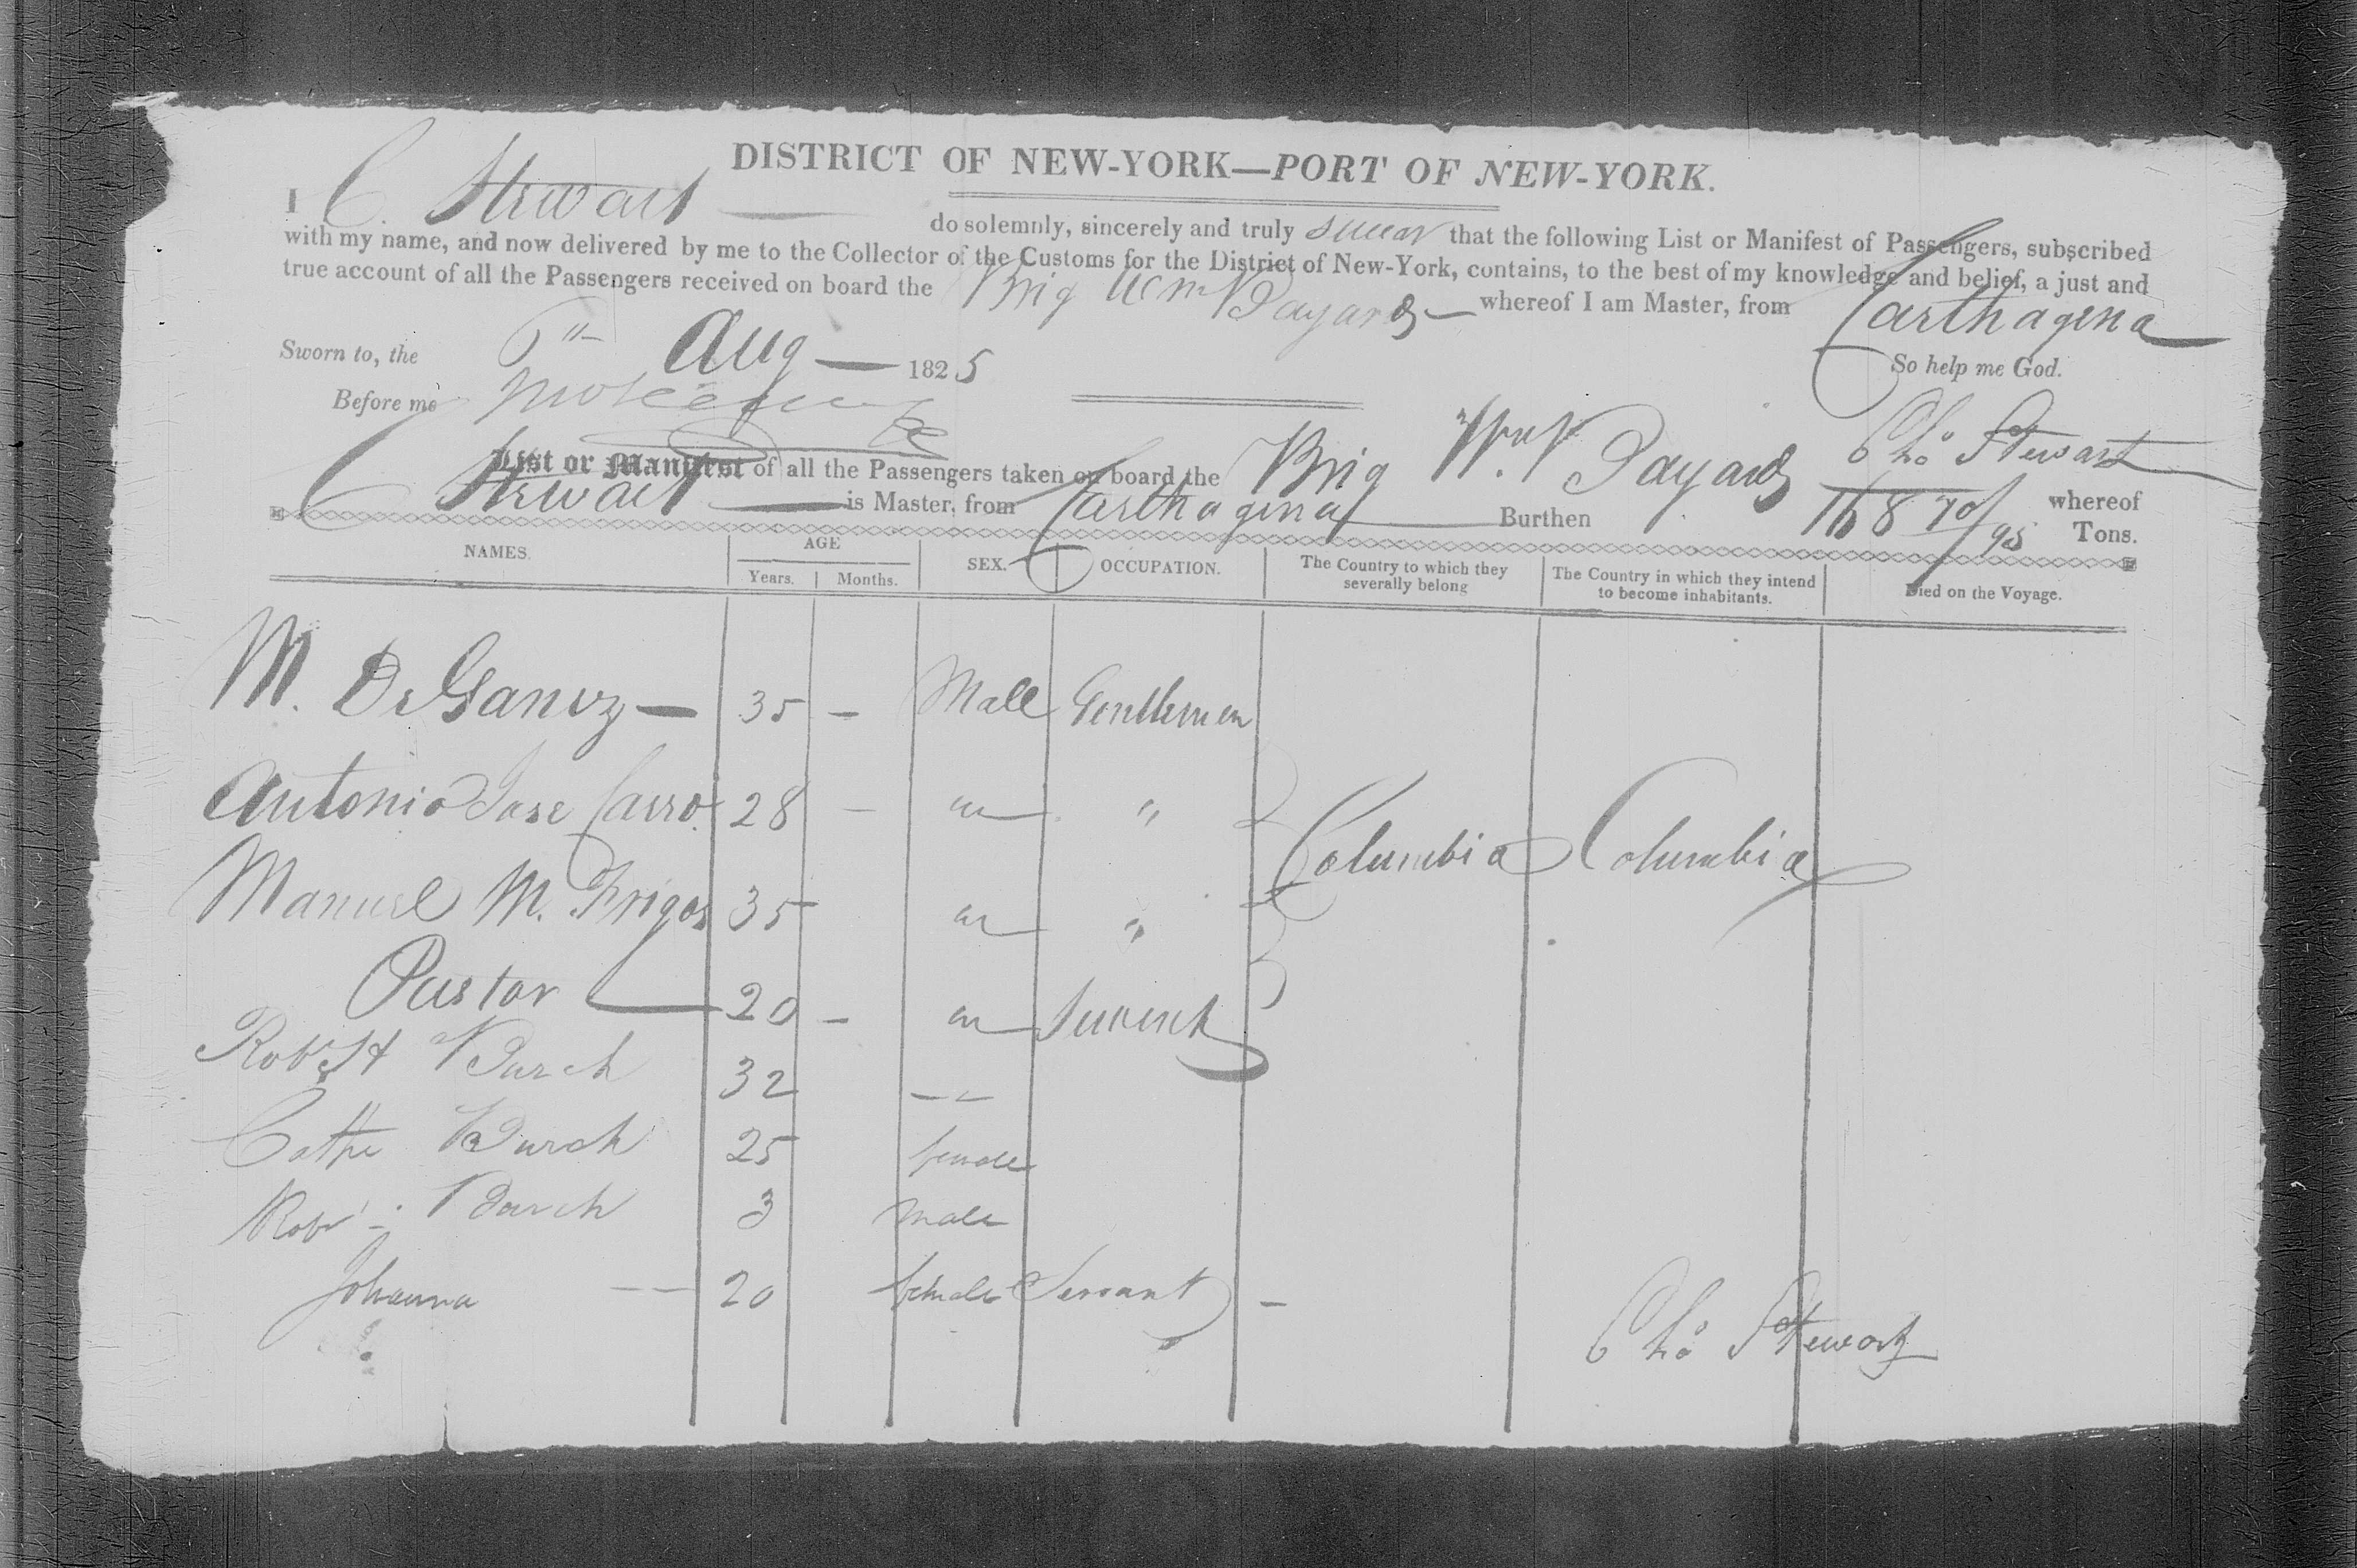 DISTRICT OF NEW-YORK—PORT OF NEW-YORK.
I C. Stewart — do solemnly, sincerely and truly swear that the following List or Manifest of Passengers, subscribed
with my name, and now delivered by me to the Collector of the Customs for the District of New-York, contains, to the best of my knowledge and belief, a just and
true account of all the Passengers received on board the Brig Wm Bayard — whereof I am Master, from Carthagena
Sworn to, the Aug — 1825 So help me God.
Before me
Chs Stewart
List or Manifest of all the Passengers taken on board the Brig Wm Bayard whereof
C Stewart — is Master, from Carthagena — Burthen 168 70/95 Tons.
NAMES. AGE SEX. OCCUPATION. The Country to which they severally belong The Country in which they intend to become inhabitants. Died on the Voyage.
Years. Months.
M. De — 35 — Male Gentlemen
Antonio Jose Carro 28 — "
Manuel M. 35 "
Pastor 20 — Servant
Columbia Columbia
Robert Burch 32 — —
Cathe Burch 25 female
Robt Burch 3 male
Johanna — — 20 female Servant —
Chs Stewart